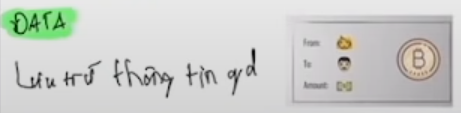 DATA
Lưu trữ thông tin gd
From:
To
Amount:
B